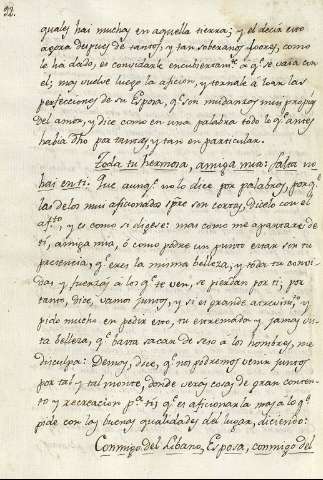 92.
quales hai muchos en aquella tierra; y el decir esto
agora despues de tantos, y tan soberanos loores, como
le ha dado, es convidarle encubiertam.te à q.e se vaia con
el; mas vuelve luego la aficion, y tornale à loar las
perfecciones de su Esposa, q.e son mudanzas mui propias
del amor, y dice como en una palabra todo lo q.e antes
habia dho por tantas, y tan en particular.
Toda tu hermosa, amiga mia: falta no
hai en ti. Que aunq.e no lo dice por palabras, porq.e
las de los mui aficionados spre son cortas, dicelo con el
af.to, y es como si digese: mas como me apartaré de
ti, amiga mia, ó como podre un punto estar sin tu
presencia, q.e eres la misma belleza, y toda tu convi-
das, y fuerzas à los q.e te ven, se pierdan por ti; por
tanto, dice, vamos juntos, y si es grande atrevim.to y
pido mucho en pedir esto, tu extremada y jamas vis-
ta belleza, q.e basta sacar de seso a los hombres, me
disculpa: Demas, dice, q.e nos podremos venir juntos
por tal y tal monte, donde veras cosas de gran conten-
to y recreacion p.a ti; q.e es aficionarla mas a lo q.e
pide con las buenas qualidades del lugar, diciendo:
Conmigo del Libano, Esposa, conmigo del